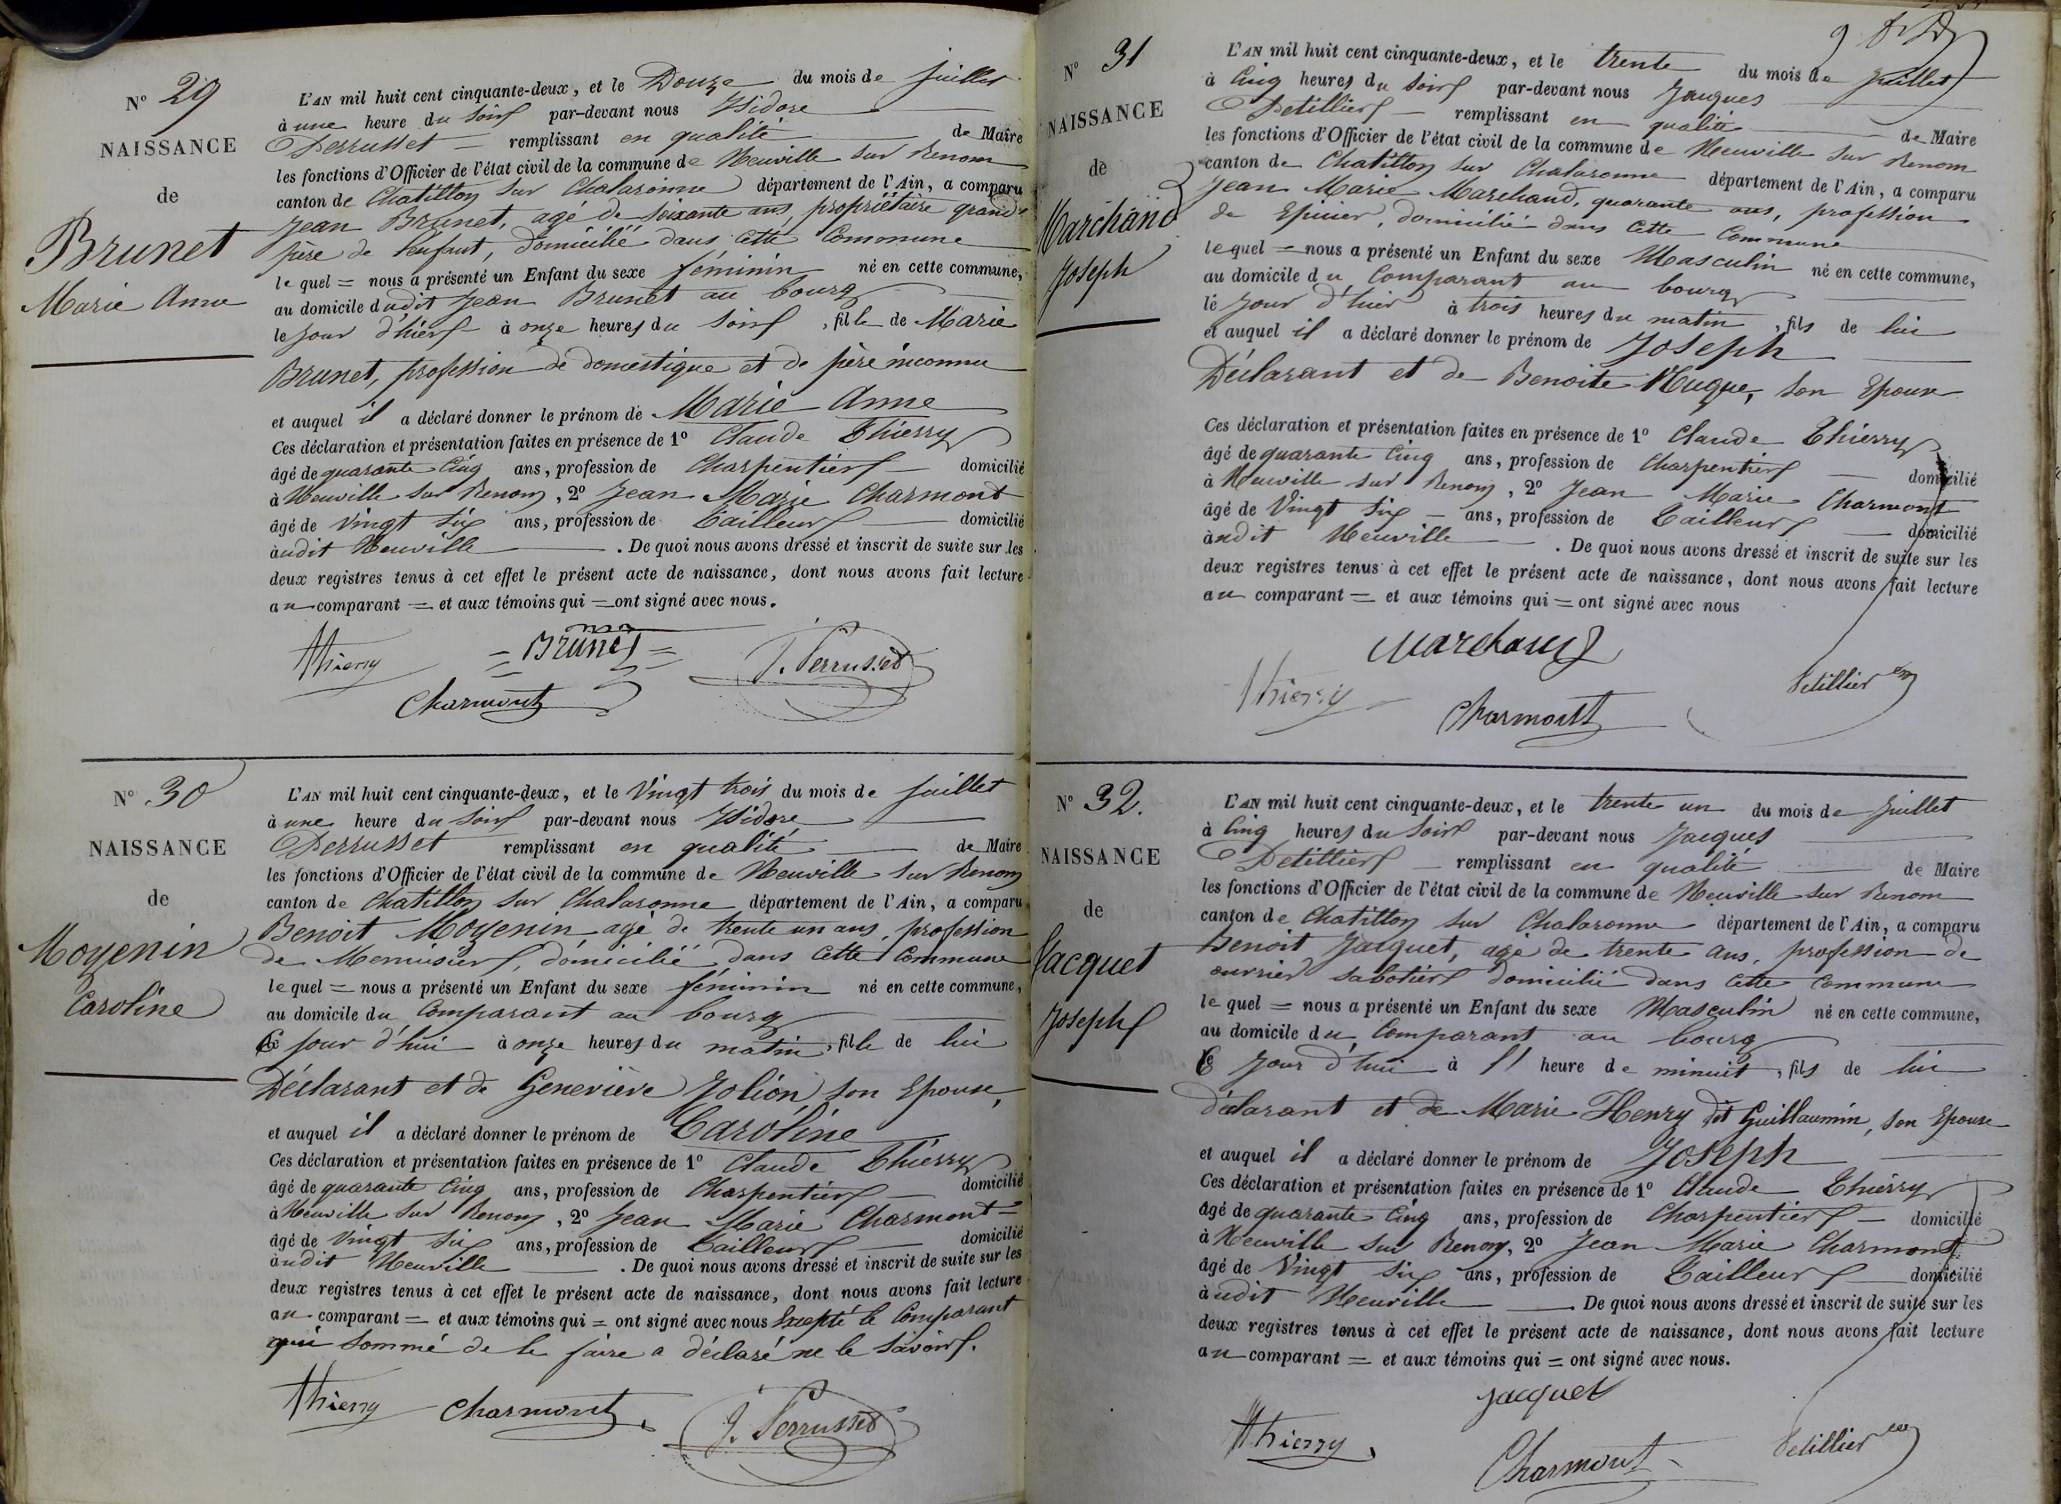 N° 29
NAISSANCE
de
Brunet
Marie Anne
L'AN mil huit cent cinquante-deux, et le Douze du mois de Juillet
à une heure du soir par-devant nous Isidore
Perrusset remplissant en qualité de Maire
les fonctions d'Officier de l'état civil de la commune de Neuville sur Renom
canton de Chatillon sur Chalaronne département de l'Ain, a comparu
Jean Brunet, agé de soixante ans, propriétaire grand
père de l'enfant, domicilié dans cette Commune
lequel = nous a présenté un Enfant du sexe féminin né en cette commune,
au domicile dudit Jean Brunet au bourg
le jour d'hier à onze heures du soir, fille de Marie
Brunet, profession de domestique et de père inconnu
et auquel il a déclaré donner le prénom de Marie Anne
Ces déclaration et présentation faites en présence de 1° Claude Thierry
âgé de quarante Cinq ans, profession de Charpentier domicilié
à Neuville sur Renom, 2° Jean Marie Charmont
âgé de Vingt Six ans, profession de Tailleur domicilié
audit Neuville . De quoi nous avons dressé et inscrit de suite sur les
deux registres tenus à cet effet le présent acte de naissance, dont nous avons fait lecture
au comparant = et aux témoins qui = ont signé avec nous.
Thierry = Brunet = J. Perrusset
Charmont
N° 30
NAISSANCE
de
Moyenin
Caroline
L'AN mil huit cent cinquante-deux, et le Vingt trois du mois de Juillet
à une heure du soir par-devant nous Isidore
Perrusset remplissant en qualité de Maire
les fonctions d'Officier de l'état civil de la commune de Neuville sur Renom
canton de Chatillon sur Chalaronne département de l'Ain, a comparu
Benoit Moyenin agé de trente un ans, profession
de Menuisier, domicilié dans cette Commune
lequel = nous a présenté un Enfant du sexe féminin né en cette commune,
au domicile du Comparant au bourg
Ce jour d'hui à onze heures du matin, fille de lui
Déclarant et de Geneviève Jolion son Epouse,
et auquel il a déclaré donner le prénom de Caroline
Ces déclaration et présentation faites en présence de 1° Claude Thierry
âgé de quarante Cinq ans, profession de Charpentier domicilié
à Neuville sur Renom, 2° Jean Marie Charmont =
âgé de Vingt Six ans, profession de Tailleur domicilié
audit Neuville . De quoi nous avons dressé et inscrit de suite sur les
deux registres tenus à cet effet le présent acte de naissance, dont nous avons fait lecture
au comparant = et aux témoins qui = ont signé avec nous Excepté le Comparant
qui sommé de le faire a déclaré ne le savoir.
Thierry Charmont J. Perrusset
N° 31
NAISSANCE
de
Marchand
Joseph
L'AN mil huit cent cinquante-deux, et le trente du mois de Juillet
à Cinq heures du soir par-devant nous Jacques
Petillier remplissant en qualité de Maire
les fonctions d'Officier de l'état civil de la commune de Neuville sur Renom
canton de Chatillon sur Chalaronne département de l'Ain, a comparu
Jean Marie Marchand, quarante ans, profession
de Epicier, domicilié dans cette Commune
lequel = nous a présenté un Enfant du sexe Masculin né en cette commune,
au domicile du Comparant au bourg
le jour d'hier à trois heures du matin, fils de lui
et auquel il a déclaré donner le prénom de Joseph
Déclarant et de Benoite Nugue, son Epouse
Ces déclaration et présentation faites en présence de 1° Claude Thierry
âgé de quarante Cinq ans, profession de Charpentier domicilié
à Neuville sur Renom, 2° Jean Marie Charmont
âgé de Vingt Six ans, profession de Tailleur domicilié
audit Neuville . De quoi nous avons dressé et inscrit de suite sur les
deux registres tenus à cet effet le présent acte de naissance, dont nous avons fait lecture
au comparant = et aux témoins qui = ont signé avec nous
Marchand
Thierry Charmont Petillier
N° 32.
NAISSANCE
de
Jacquet
Joseph
L'AN mil huit cent cinquante-deux, et le trente un du mois de Juillet
à Cinq heures du Soir par-devant nous Jacques
Petillier remplissant en qualité de Maire
les fonctions d'Officier de l'état civil de la commune de Neuville sur Renom
canton de Chatillon sur Chalaronne département de l'Ain, a comparu
Benoit Jacquet, agé de trente ans, profession de
ouvrier sabotier domicilié dans cette Commune
lequel = nous a présenté un Enfant du sexe Masculin né en cette commune,
au domicile du Comparant au bourg
Ce jour d'hui à l' heure de minuit, fils de lui
déclarant et de Marie Henry dit Guillaumin, son Epouse
et auquel il a déclaré donner le prénom de Joseph
Ces déclaration et présentation faites en présence de 1° Claude Thierry
âgé de quarante Cinq ans, profession de Charpentier domicilié
à Neuville sur Renom, 2° Jean Marie Charmont
âgé de Vingt Six ans, profession de Tailleur domicilié
audit Neuville . De quoi nous avons dressé et inscrit de suite sur les
deux registres tenus à cet effet le présent acte de naissance, dont nous avons fait lecture
au comparant = et aux témoins qui = ont signé avec nous.
Jacquet
Thierry Charmont Petillier